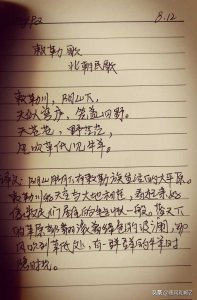 8.12
敕勒歌
北朝民歌
敕勒川，阴山下，
天似穹庐，笼盖四野。
天苍苍，野茫茫，
风吹草低见牛羊。
译文：阴山脚下有敕勒族生活的大平原。
敕勒川的天空与大地相连，看起来好
像牧民们居住的毡帐一般。蓝天下
的草原都翻滚着绿色的波澜，那
风吹到草低处，有一群群的牛羊时
隐时现。
头条